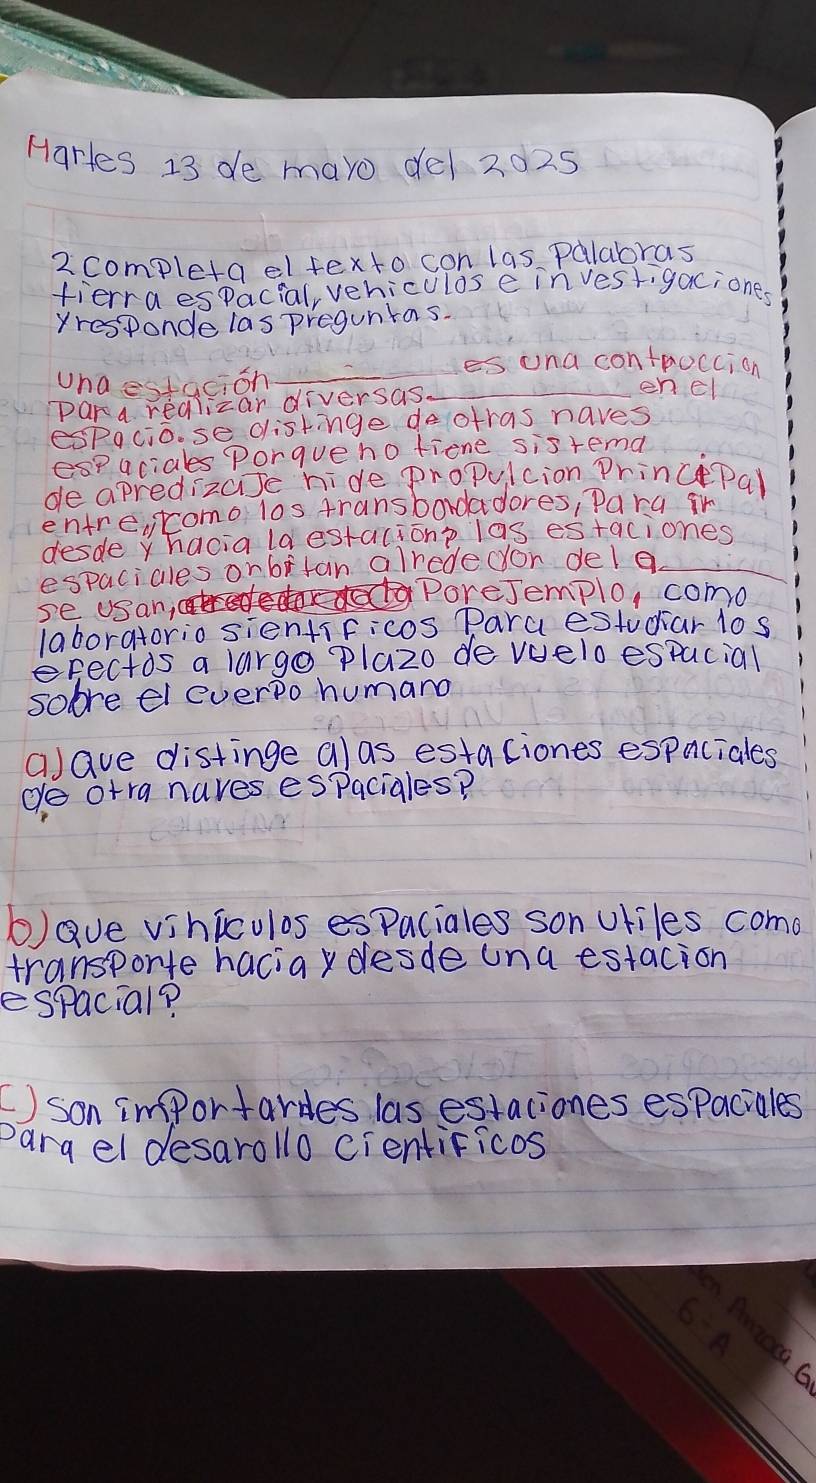 Martes 13 de mayo del 2025
2 completa el texto con las palabras
tierra espacial, vehiculos e investigaciones
y responde las preguntas.
una estación ________ es una contruccion
para realizar diversas ________ en el
espacio. se distinge de otras naves
espaciales porque no tiene sistema
de apredizaje ni de propulcion principal
entre, como los transbordadores, para ir
desde y hacia la estación? las estaciones
espaciales orbitan alrededor de la ________
se usan, por ejemplo, como
laboratorio sientificos para estudiar los
efectos a largo plazo de vuelo espacial
sobre el cuerpo humano
a) que distinge a las estaciones espaciales
de otra naves espaciales?
b) que vihiculos espaciales son utiles como
transporte hacia y desde una estacion
espacial?
c) son importantes las estaciones espaciales
para el desarollo cientificos
6-A